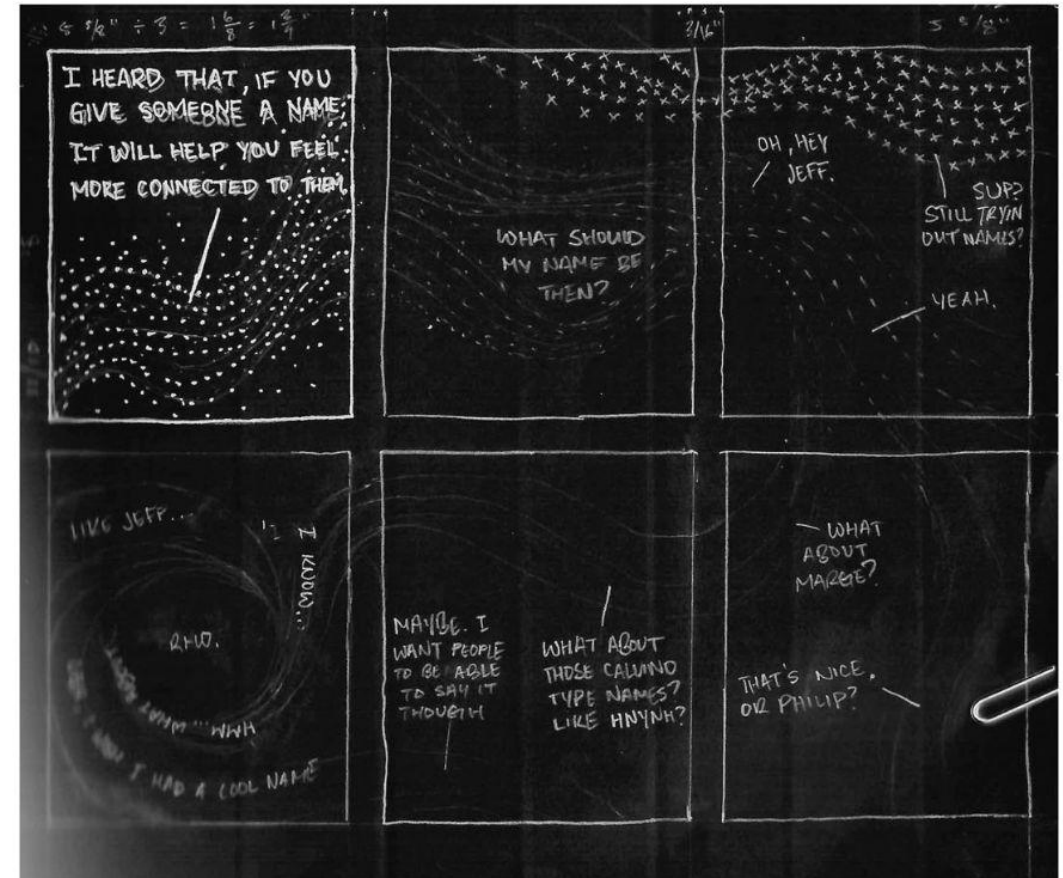 5 5/8" ÷ 3 = 1 6/8 = 1 3/4
3/16"
5 5/8"
I HEARD THAT, IF YOU
GIVE SOMEONE A NAME,
IT WILL HELP YOU FEEL
MORE CONNECTED TO THEM.
WHAT SHOULD
MY NAME BE
THEN?
OH, HEY
JEFF.
SUP?
STILL TRYIN
OUT NAMES?
YEAH.
LIKE JEFF...
I KNOW...
RHO.
HMM... WHAT ABOUT
I HAD A COOL NAME
MAYBE. I
WANT PEOPLE
TO BE ABLE
TO SAY IT
THOUGH
WHAT ABOUT
THOSE CALVINO
TYPE NAMES?
LIKE HNYNH?
WHAT
ABOUT
MARGE?
THAT'S NICE.
OR PHILIP?